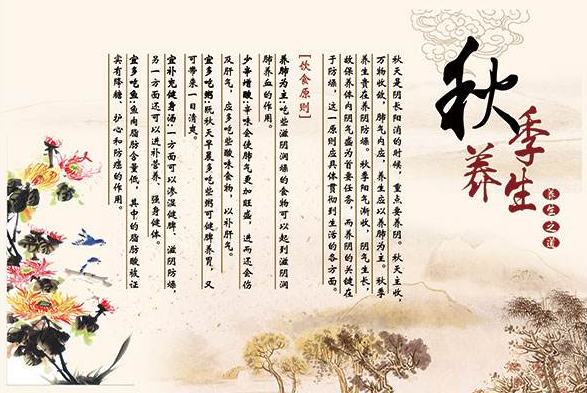 秋季养生
养生之道
秋天是阴长阳消的时候，重点要养阴。秋天主收，
万物收敛，肺气内应，养生应以养肺为主。秋季
养生贵在养阴防燥。秋季阳气渐收，阴气生长，
故保养体内阴气盛为首要任务，而养阴的关键在
于防燥，这一原则应具体贯彻到生活的各方面。
[饮食原则]
养肺为主:吃些滋阴润燥的食物可以起到滋阴润
肺养血的作用。
少辛增酸:辛味会使肺气更加旺盛，进而还会伤
及肝气，应多吃些酸味食物，以补肝气。
宜多吃粥:秋天早晨多吃些粥可健脾养胃，又
可带来一日清爽。
宜补充健身汤:一方面可以渗湿健脾、滋阴防燥，
另一方面还可以进补营养、强身健体。
宜多吃鱼:鱼肉脂肪含量低，其中的脂肪酸被证
实有降糖、护心和防癌的作用。